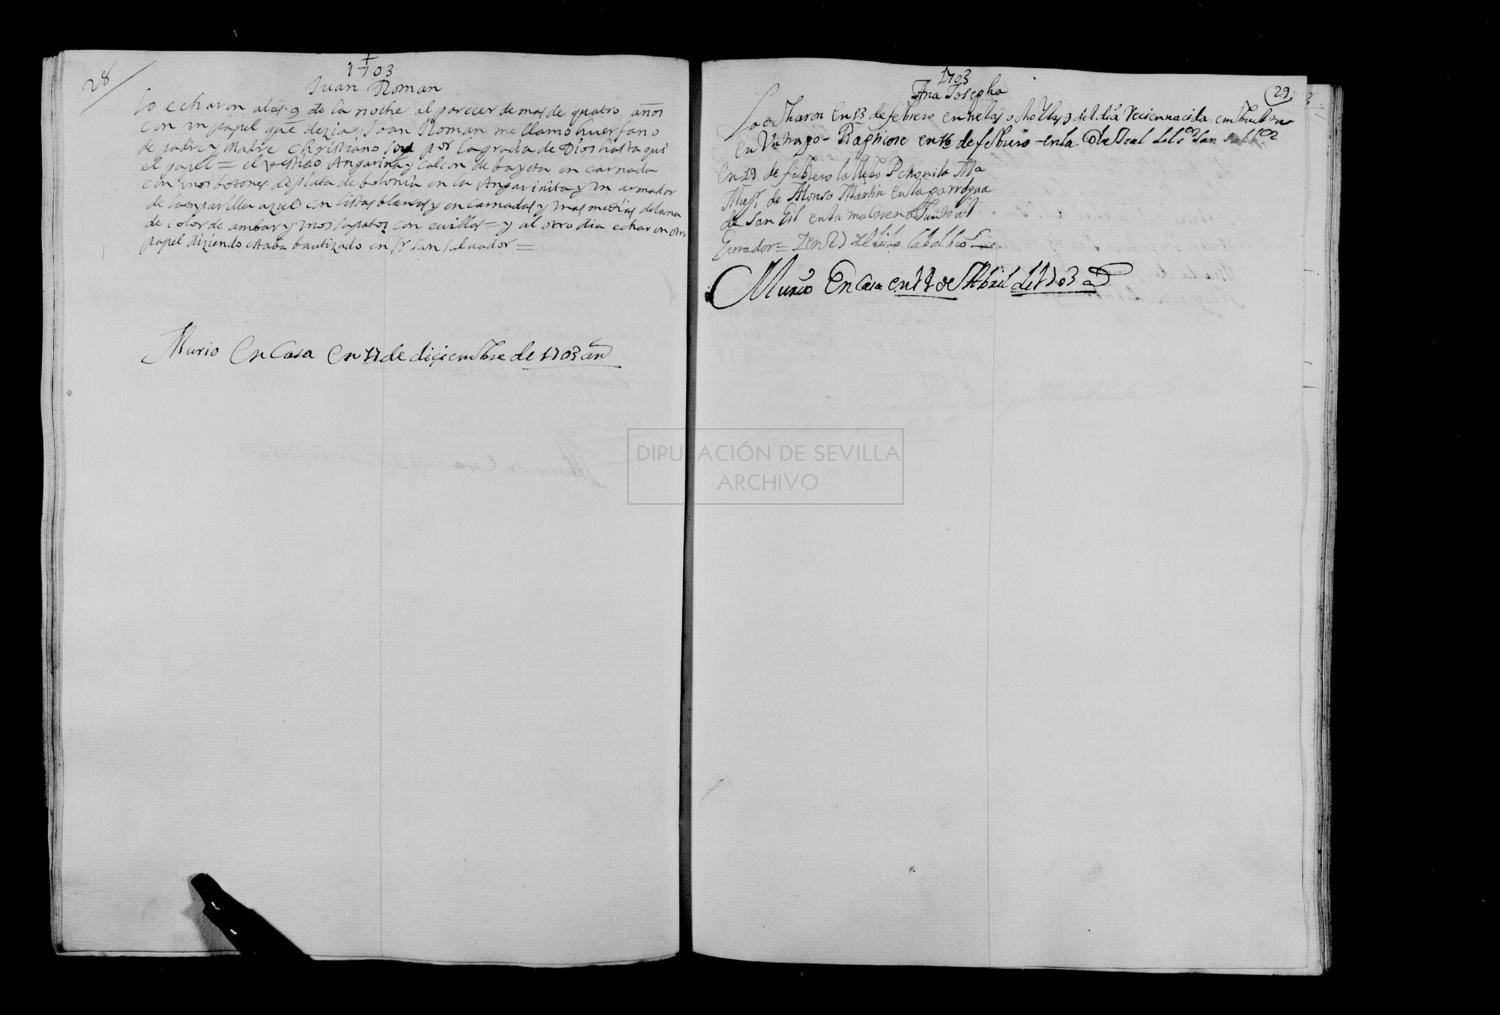 28
1703
Juan Roman
lo echaron a las 9 de la noche al parecer de mas de quatro años
con un papel que dezia Joan Roman me llamo huerfano
de padre y Madre christiano soy por la gracia de Dios hasta qui
el papel = el vestido Angarina y calcon de bayeta en carnada
con unos botones de plata de bolonia en la Angarinita y un armador
de lamparilla azul con listas blancas y en carnadas y unas medias de lana
de color de ambar y unos sapatos con evillas = y al otro dia echaron otro
papel diziendo estaba bautizado en Sr san salvador =
Murio En Casa en 17 de diciembre de 1703 an
1703
Ana Josepha
29
La echaron en 13 de febrero entre las ocho y las 9 del dia recien nacida embuelta
en Un trapo - Baptiose en 16 de febrero en la
en 19 de febrero la llebo Petronila
Mugr de Alonso Martin en la parroqua
de San Gil en la macarena Junto al
la bolbio
Murio En Casa en 17 de Abril de 1703 a
DIPUTACIÓN DE SEVILLA
ARCHIVO